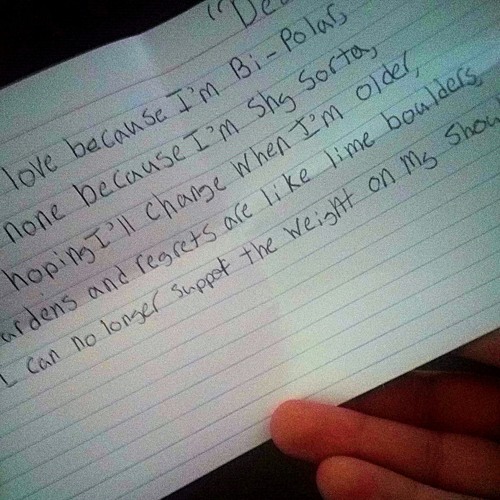 love because I'm Bi-Polar,
none because I'm Shy Sorta,
hoping I'll change when I'm older,
ardens and regrets are like lime boulders,
I can no longer suppot the weight on my shou